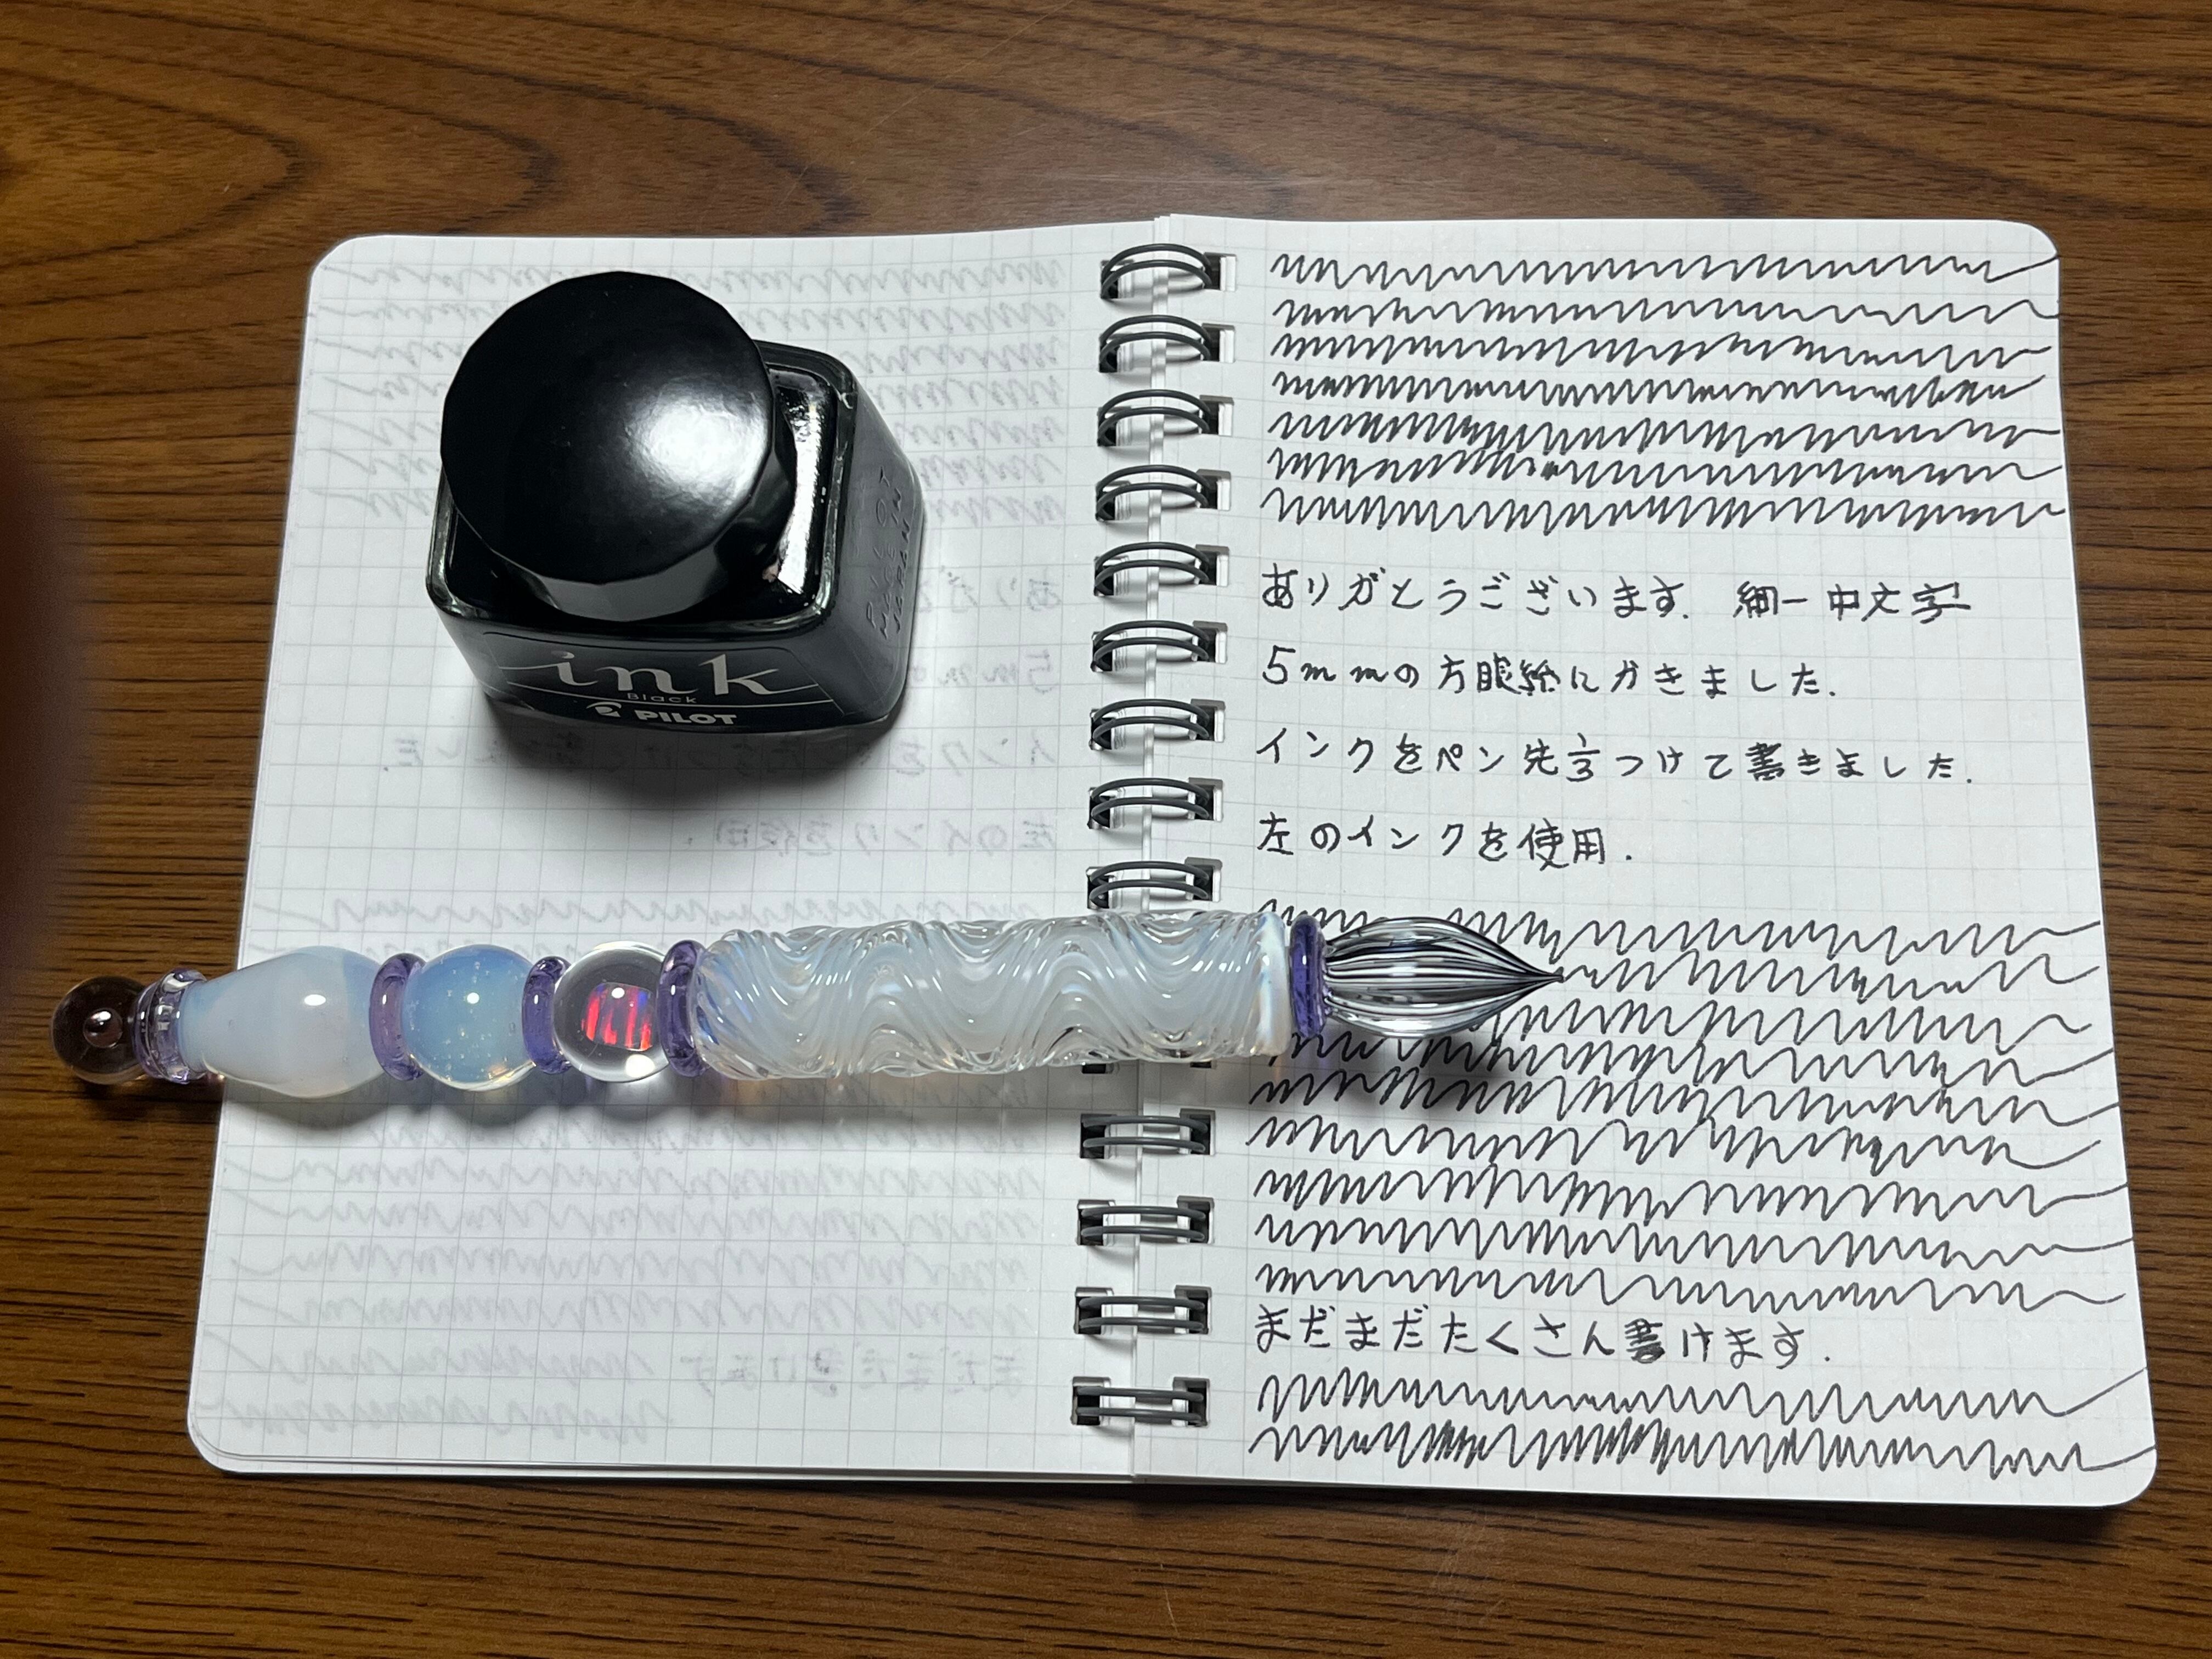 ink
Black
PILOT
PILOT
MADE IN
JAPAN
ありがとうございます. 細ー中文字
5mmの方眼紙にかきました.
インクをペン先1/3つけて書きました.
左のインクを使用.
まだまだたくさん書けます.